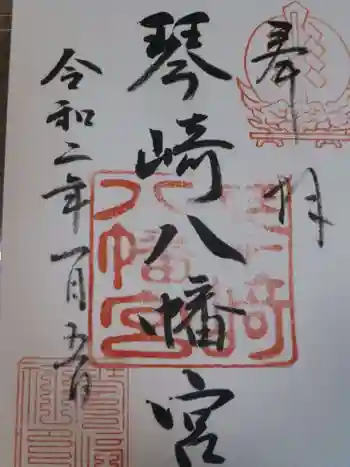 奉拝
琴崎八幡宮
令和二年一月五日
琴崎
八幡宮